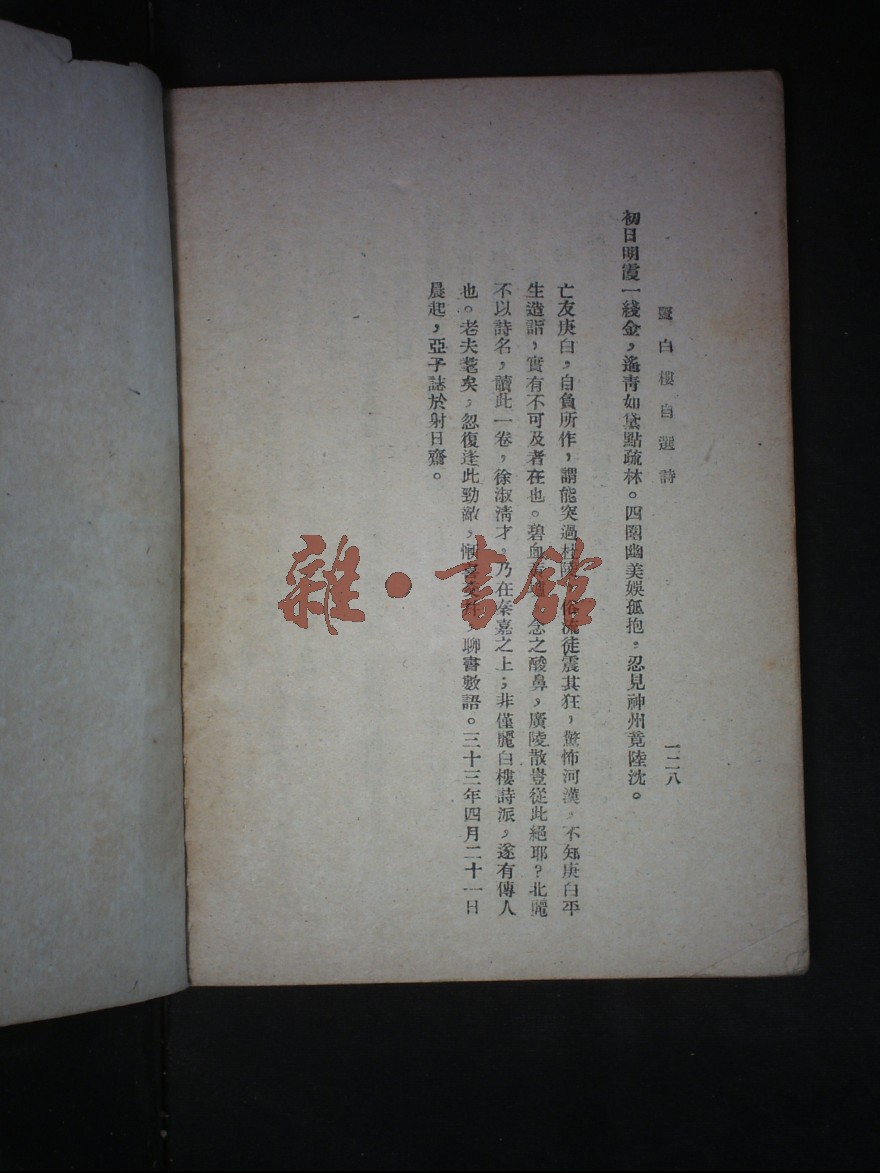 麗白樓自選詩
一二八
初日明霞一綫金,遙靑如黛點疏林。四圍幽美娛孤抱。忍見神州竟陸沈。
亡友庚白,自負所作,謂能突過杜陵,俗流徒震其狂,驚怖河漢,不知庚白平
生造詣,實有不可及者在也。碧血 念之酸鼻,廣陵散豈從此絕耶?北麗
不以詩名,讀此一卷,徐淑淸才,乃在秦嘉之上;非僅麗白樓詩派,遂有傳人
也。老夫耄矣,忽復逢此勁敵, 聊書數語。三十三年四月二十一日
晨起,亞子誌於射日齋。
雜·書館